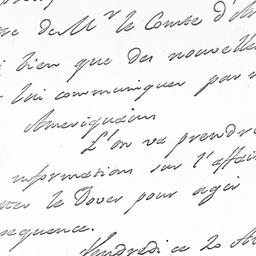 de Mr le Comte d'A
bien que des nouvelle
lui communiquer par
Ameriquains
L'on va prendre
informations sur l'affai
le Dover pour agir
sequence.
Vendredi ce 20